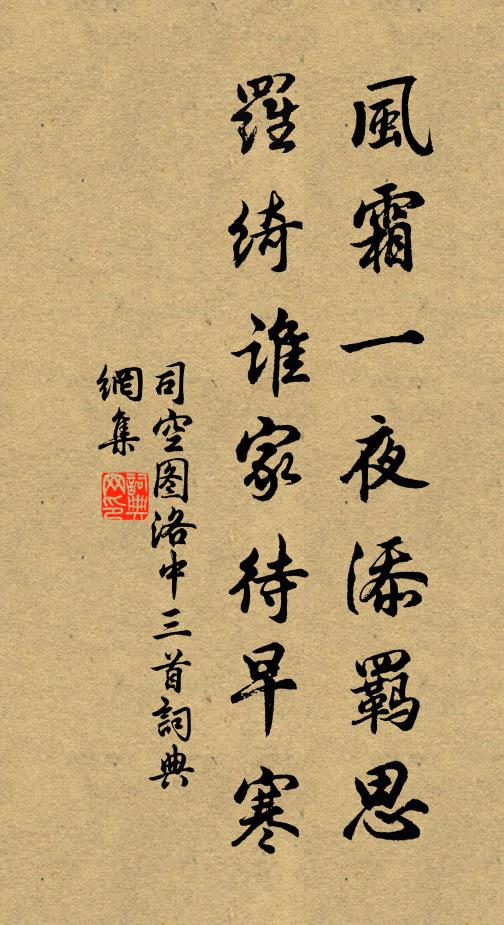 風霜一夜添羈思
羅綺誰家待早寒
司空图洛中三首詞典
網集
詞典
网印